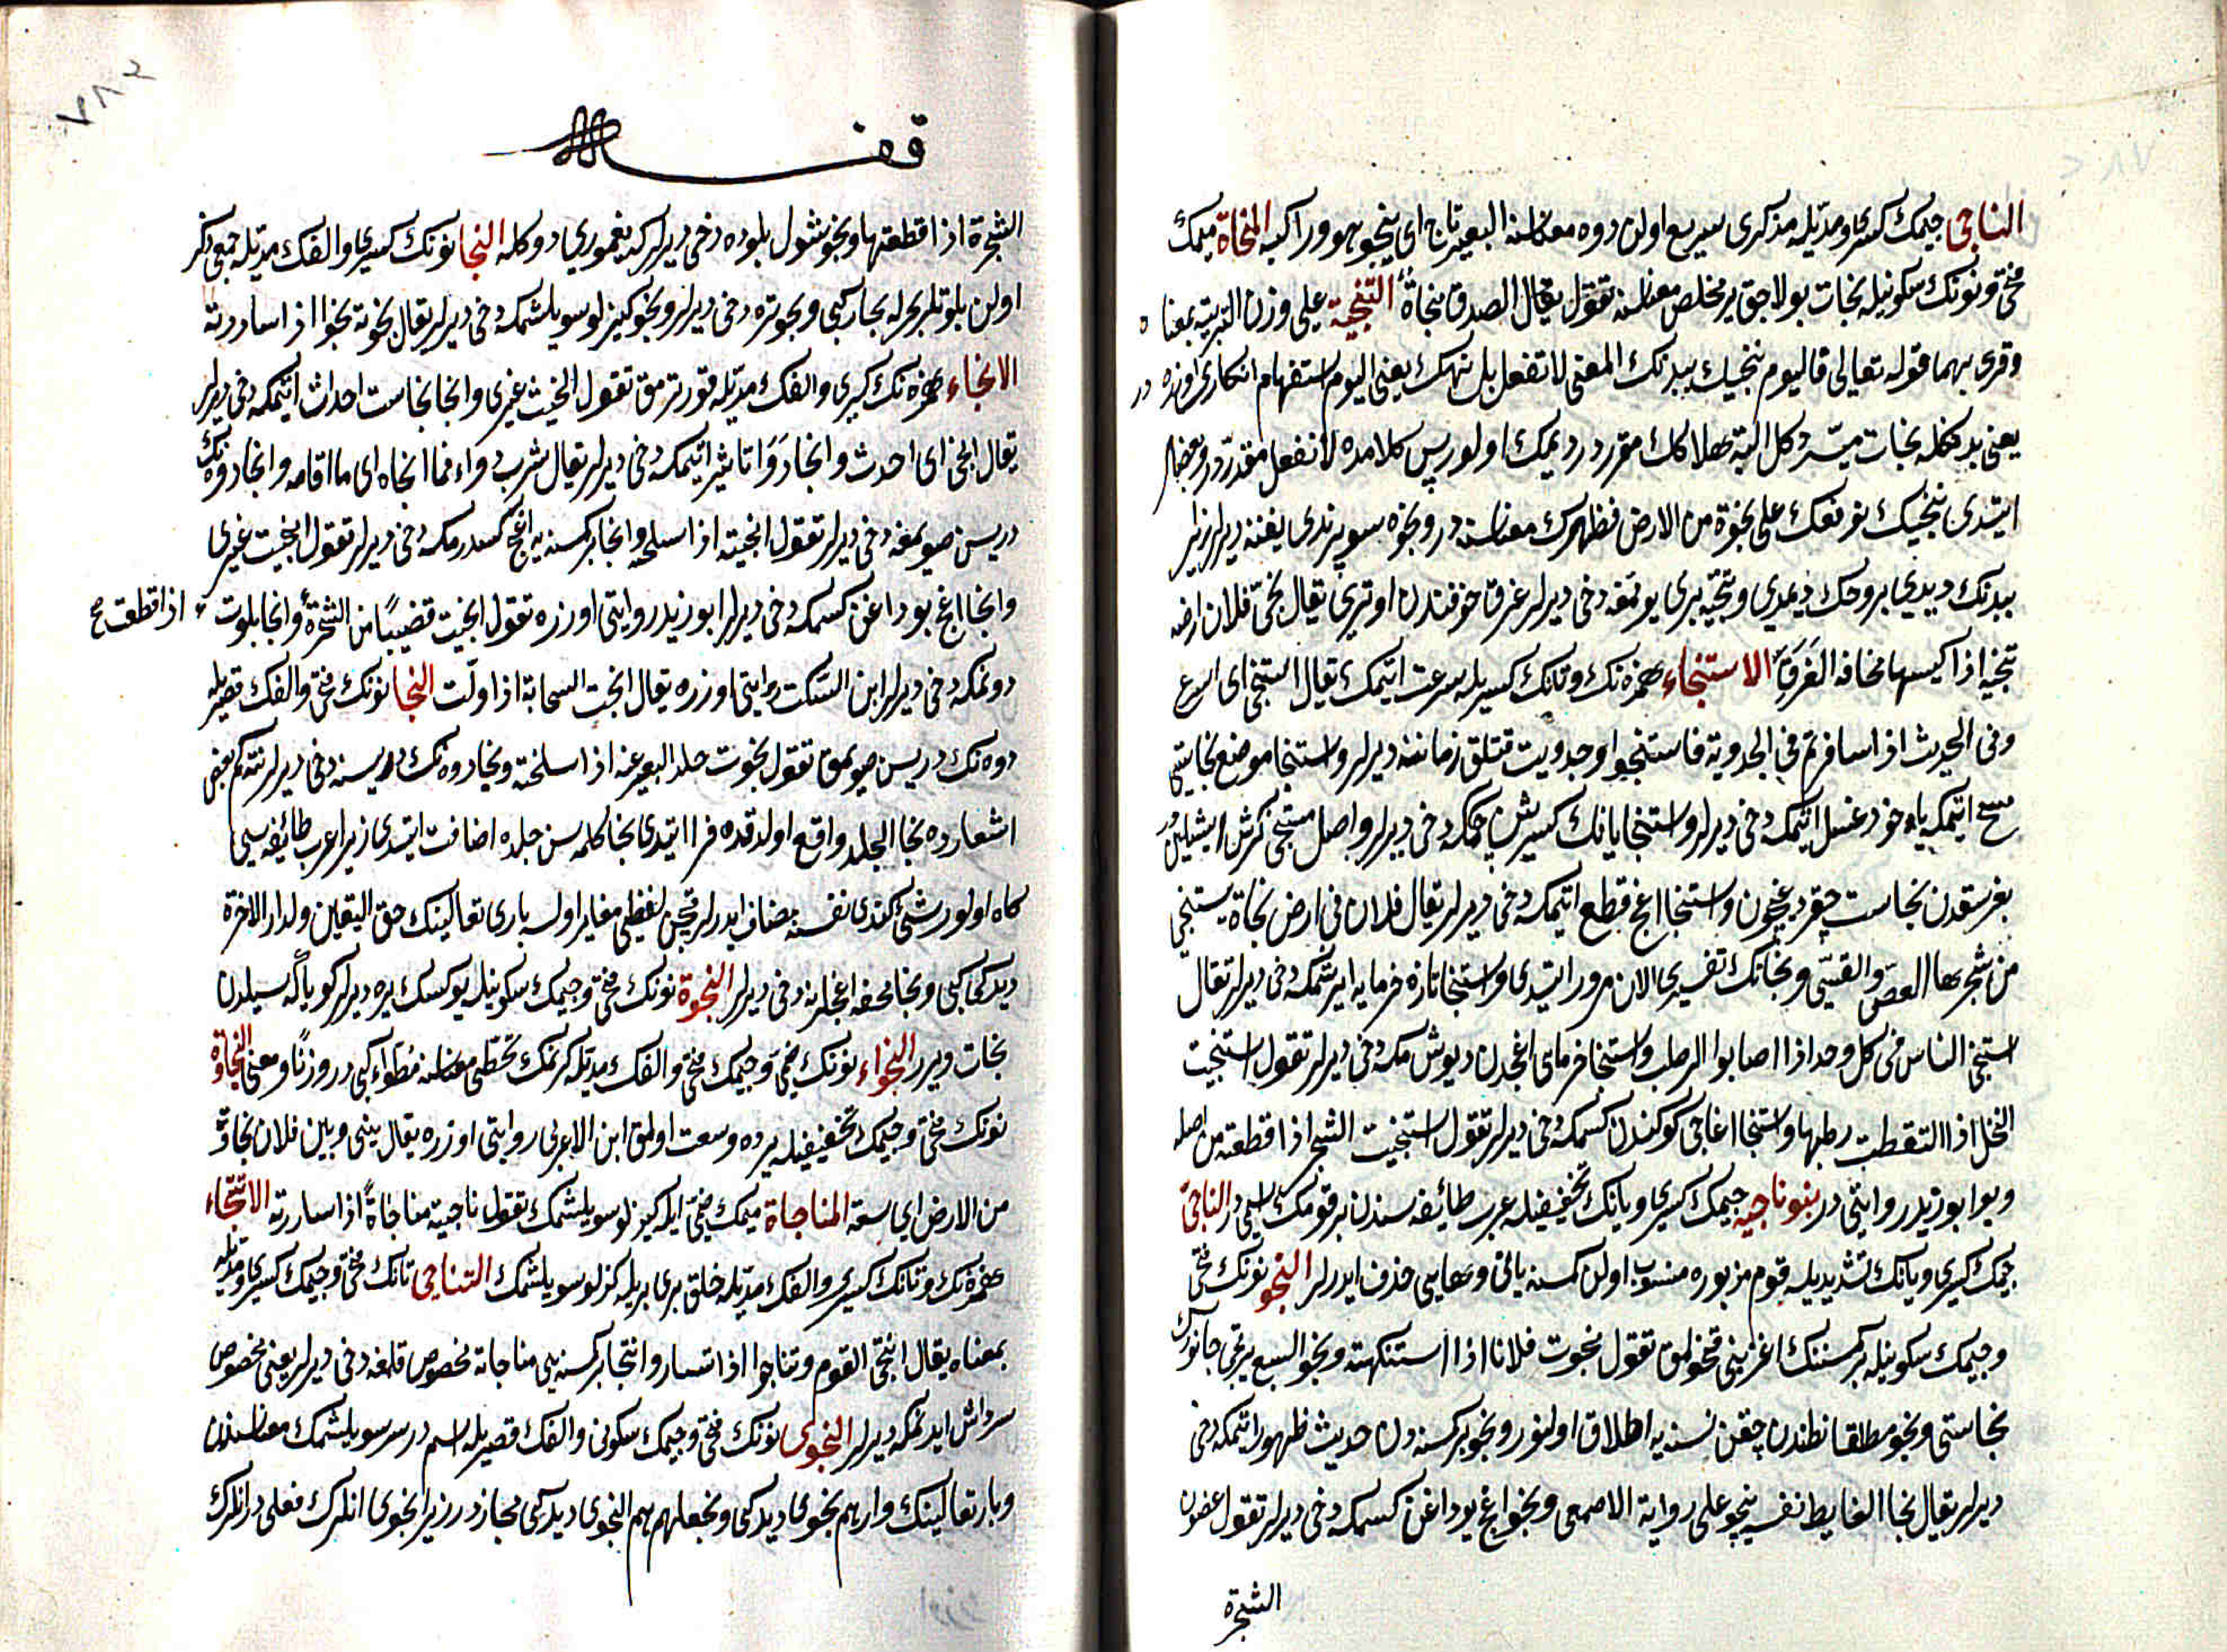 الناجى جيمك كسرى ومديله مذكرى سريع اولن دوه معناسنه البعير ناج اى ينجو بهو وراكبه المنجاة ميمك
فتحى ونونك سكونيله نجات بولاجق ير مخلص معناسنه تقول يقال الصدق منجاة التنجية على وزن التربية بمعناه
وقرى بهما قوله تعالى فاليوم ننجيك ببدنك المعنى لا نفعل بل نهلك يعنى اليوم استفهام انكارى اوزره در
يعنى بدنكله نجات ميسر دكل البته هلاكك مقرردر ديمك اولور پس كلامده لا نفعل مقدردر وبعضلر
ايتدى ننجيك نرفعك على نجوة من الارض فنظهرك معناسنه در ونجوه سوپرندى يغنه ديرلر زيرا
ببدنك ديدى بروحك ديمدى وتنجيه يرى يومغه دخى ديرلر غرق خوفندن اوترى يقال نجى فلان ارضه
تنجية اذا كبسها مخافة الغرق الاستنجاء همزه نك وتانك كسريله سرعت ايتمك يقال استنجى اى اسرع
وفى الحديث اذا سافرتم فى الجدوبة فاستنجوا وجدوبت قتلق زماننه ديرلر واستنجا موضع نجاستى
مسح ايتمكه ياخود غسل ايتمكه دخى ديرلر واستنجا يانك كيرشن چكمكه دخى ديرلر واصل مستنجى كرش ايشلين
بغرسقدن نجاست چقرديغيچون واستنجا اغج قطع ايتمكه دخى ديرلر يقال فلان فى ارض نجاة يستنجى
من شجرها العصى والقسى ونجانك تفسيرى الان مرور ايتدى واستنجا تازه خرمايه ايرشمكه دخى ديرلر تقال
استنجى الناس فى كل وجه اذا اصابوا الرطب واستنجا خرماى اغجدن ديوشرمكه دخى ديرلر تقول استنجيت
النخل اذا التقطت رطبها واستنجا اغاجى كوكندن كسمكه دخى ديرلر تقول استنجيت الشجر اذا قطعته من اصله
وبو ابو زيد روايتى در بنو ناجيه جيمك كسرى ويانك تخفيفيله عرب طائفه سندن بر قومك اسمى در الناجى
جيمك كسرى ويانك تشديديله قوم مزبوره منسوب اولن كمسنه يائى وهايى حذف ايدرلر النجو نونك فتحى
وجيمك سكونيله بر كمسنه نك اغزينى قوخولمق تقول نجوت فلانا اذا استنكهته ونجو السبع يرتجى جانورك
نجاستى ونجو مطلقا بطندن چقن نسنه يه اطلاق اولنور ونجو بر كمسنه دن حديث ظهور ايتمكه دخى
ديرلر يقال نجا الغايط نفسه ينجو على رواية الاصمعى ونجو اغج بوداغن كسمكه دخى ديرلر تقول غصون
الشجرة
٧٨٢
قف
الشجرة اذا قطعتها ونجو شول بلوده دخى ديرلر كه يغمورى دوكله النجا نونك كسرى والفك مديله جمعى در
اولن بلوتلر بحر له بحار كبى ونجو سره دخى ديرلر ونجو كيزلو سويلشمكه دخى ديرلر يقال نجوته نجوا اذا ساررته
الانجاء همزه نك كسرى والفك مديله قورترمق تقول انجيت غيرى وانجا نجاست احداث ايتمكه دخى ديرلر
يقال انجى اى احدث وانجا دوا تاثير ايتمكه دخى ديرلر يقال شرب دواء فما انجاه اى ما اقامه وانجا دوه نك
دريسن صويمغه دخى ديرلر تقول انجيته اذا سلخه وانجا بر كمسنه يه اغج كسدرمكه دخى ديرلر تقول انجيت غيرى
وانجا اغج بوداغن كسمكه دخى ديرلر ابو زيد روايتى اوزره تقول انجيت قضيبا من الشجرة وانجا بلوت
اذا قطعت صح
دونمكه دخى ديرلر ابن السكيت روايتى اوزره يقال انجت السحابة اذا ولت النجا نونك فتحى والفك قصريله
دوه نك دريسن صويمق تقول نجوت جلد البعير عنه اذا سلخته ونجا دوه نك دريسنه دخى ديرلر نته كم بعض
اشعارده نجا الجلد واقع اولدقده فرا ايتدى نجا كلمه سن جلده اضافت ايتدى زيرا عرب طائفه سى
كاه اولور شئى كندى نفسنه مضاف ايدرلر قچن لفظى مغاير اولسه بارى تعالينك حق اليقين ولدار الاخرة
ديدكى كبى ونجا محفه اغجلرينه دخى ديرلر النجوة نونك فتحى وجيمك سكونيله يوكسك يره ديرلر كويا كه سيلدن
نجات ويرر النجواء نونك ضمى وجيمك فتحى والفك مديله كرنمك تمطى معناسنه مطواء كبى در وزنا ومعنى النجاوة
نونك فتحى وجيمك تخفيفيله يرده وسعت اولمق ابن الاعرابى روايتى اوزره يقال بينى وبين فلان نجاوة
من الارض اى سعة المناجاة ميمك ضمى ايله كيزلو سويلشمك تقول ناجيته مناجاة اذا ساررته الانتجاء
همزه نك وتانك كسرى والفك مديله خلق برى بريله كزلو سويلشمك التناجى تانك فتحى وجيمك كسرى ومديله
بمعناه يقال انتجى القوم وتناجوا اذا تساروا وانتجا بر كمسنه يى مناجاته مخصوص قلمغه دخى ديرلر يعنى مخصوص
سرداش ايدنمكه ديرلر النجوى نونك فتحى وجيمك سكونى والفك قصريله اسم در سر سويلشمك معناسندن
وبارى تعالينك واذ هم نجوى ديدكى ونجعلهم هم النجوى ديدكى مجازدر زيرا نجوى انلرك فعلى در انلرك